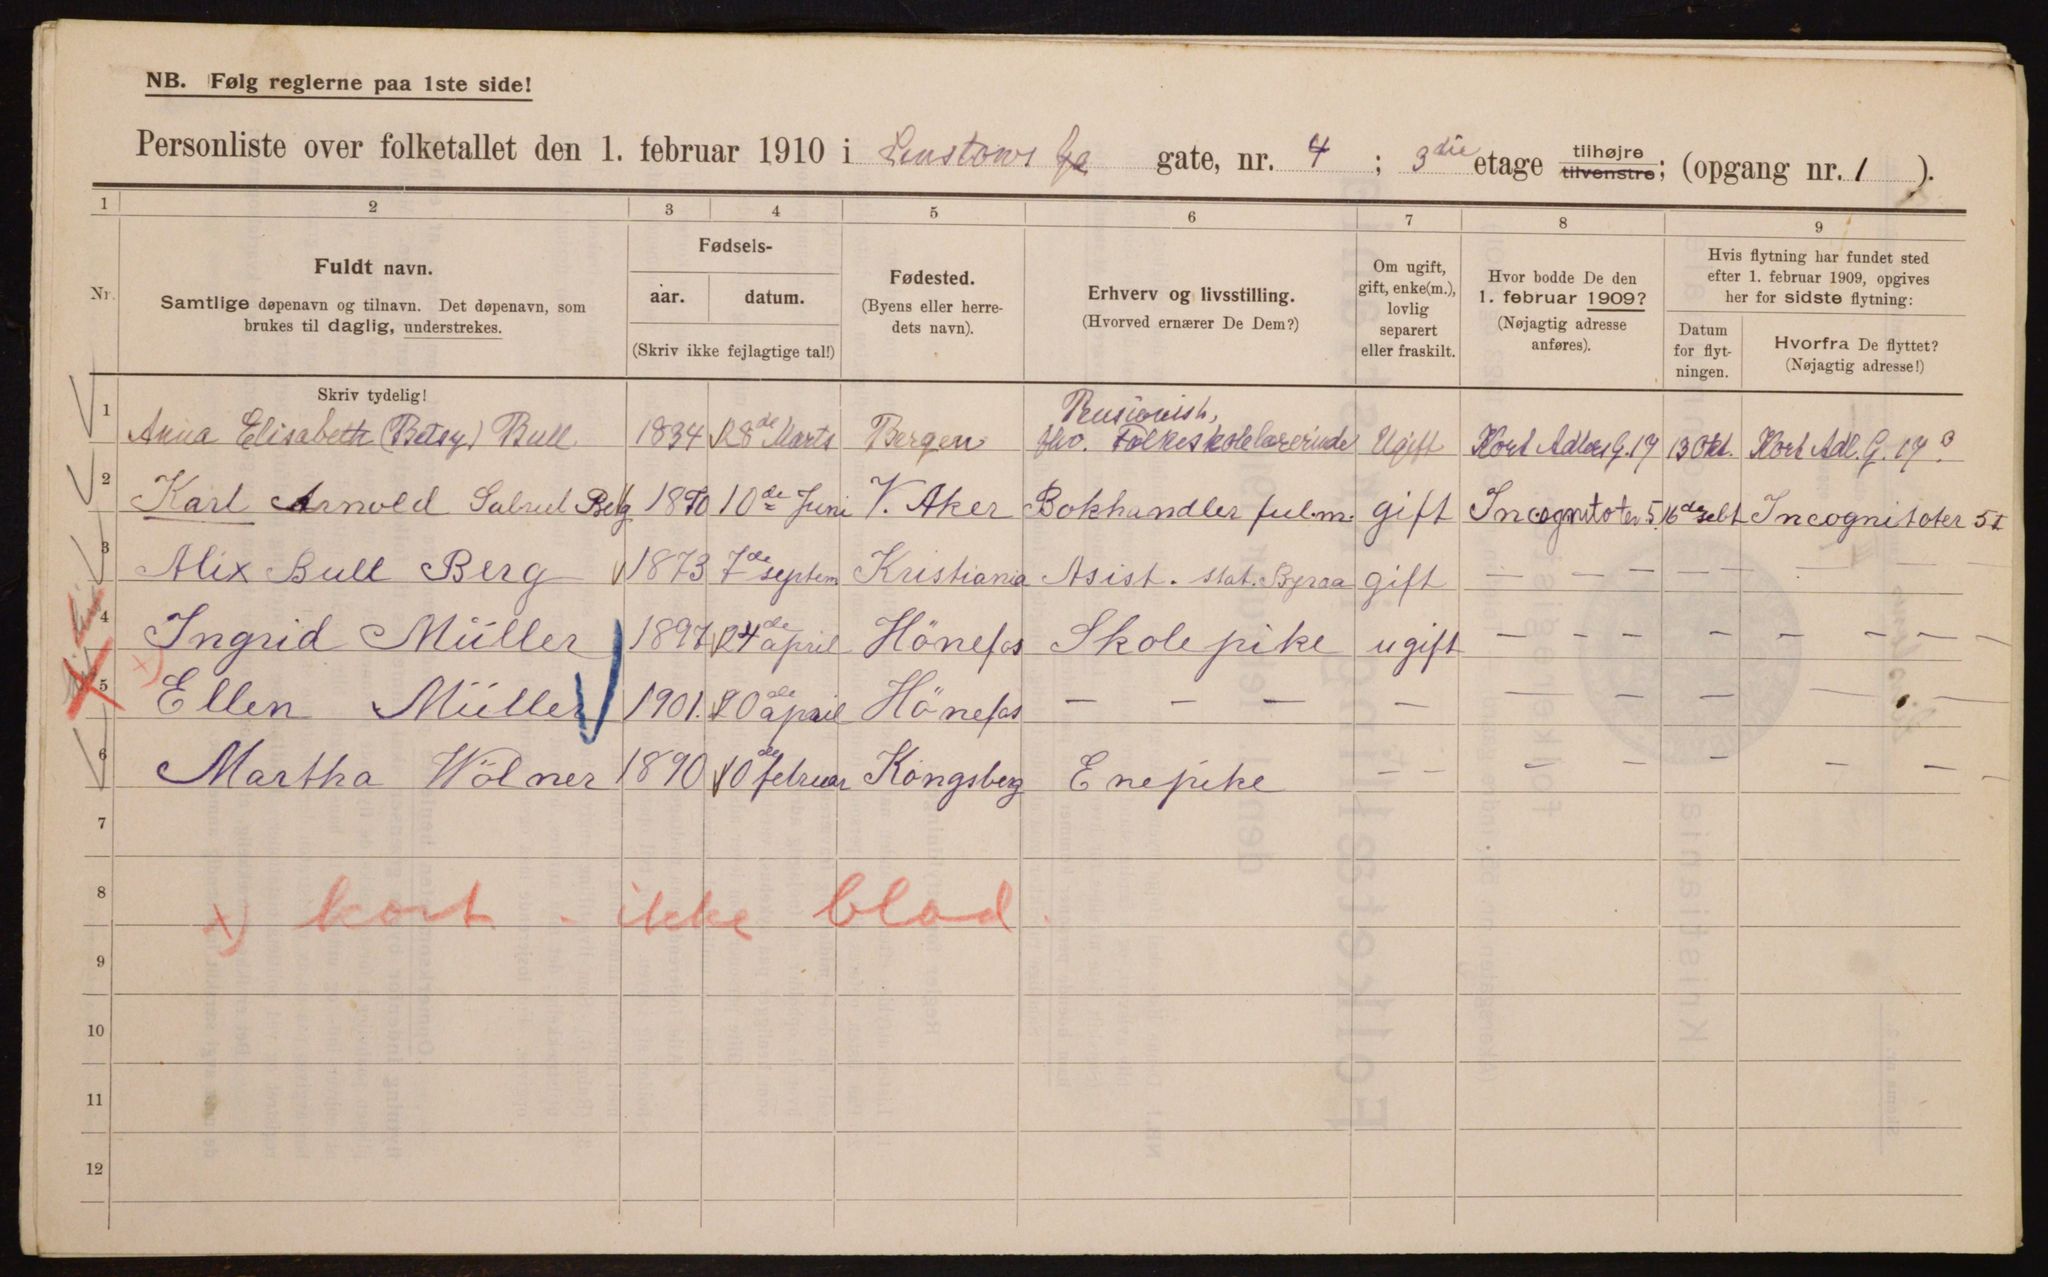 NB. Følg reglerne paa 1ste side!
Personliste over folketallet den 1. februar 1910 i Linstows g. gate, nr. 4 ; 3die etage tilhøjre tilvenstre; (opgang nr. 1 ).
1 2 3 4 5 6 7 8 9
Nr.
Fuldt navn.
Samtlige døpenavn og tilnavn. Det døpenavn, som
brukes til daglig, understrekes.
Skriv tydelig!
Fødsels-
aar. datum.
(Skriv ikke fejlagtige tal!)
Fødested.
(Byens eller herre-
dets navn).
Erhverv og livsstilling.
(Hvorved ernærer De Dem?)
Om ugift,
gift, enke(m.),
lovlig
separert
eller fraskilt.
Hvor bodde De den
1. februar 1909?
(Nøjagtig adresse
anføres).
Hvis flytning har fundet sted
efter 1. februar 1909, opgives
her for sidste flytning:
Datum
for flyt-
ningen.
Hvorfra De flyttet?
(Nøjagtig adresse!)
1 Anna Elisabeth (Betsy) Bull 1834 28de Marts Bergen Pensionist, fhv. Folkeskolelærerinde Ugift Kort Adlers G. 17 13 Okt. Kort Adl. G. 17
2 Karl Arnold Gabriel Berg 1870 10de Juni V. Aker Bokhandler fulm. gift Incognitoter 5. 16de sebt Incognitoter 5 I
3 Alix Bull Berg 1873 7de septem Kristiania Asist. stat. Byraa gift — — — — — — — —
4 Ingrid Müller 1897 24de april Hönefos Skolepike ugift — — — — — — — —
5 Ellen Müller 1901. 20de april Hönefos — — — — — — — — —
6 Martha Wölner 1890 10de februar Kongsberg Enepike — — — — — — — —
7
8
x) kort - ikke blad.
9
10
11
12